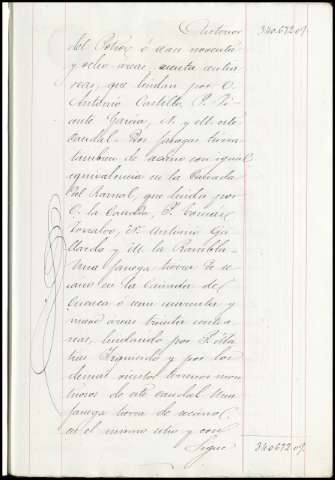 Anterior 340.672.09
del Peñón ó sean noventa
y ocho áreas, setenta centia
reas, que lindan por O.
Antonio Castillo, P. Vi
cente Garcia, N. y M. este
caudal. Dos fanegas tierra
tambien de secano con igual
equivalencia en la Cañada
del Ramal, que linda por
O. la Cañada, P. Tomas
Torralvo, N. Antonio Ga
llardo y M. la Rambla.
Una fanega tierra de se
cano en la Cañada de
ó sean cuarenta y
nueve áreas treinta centia
reas, lindando por P. Ma
tias Izquierdo y por los
demas vientos terrenos mon
tuosos de este caudal. Una
fanega tierra de secano
en el mismo sitio y con
Sigue 340.672.09